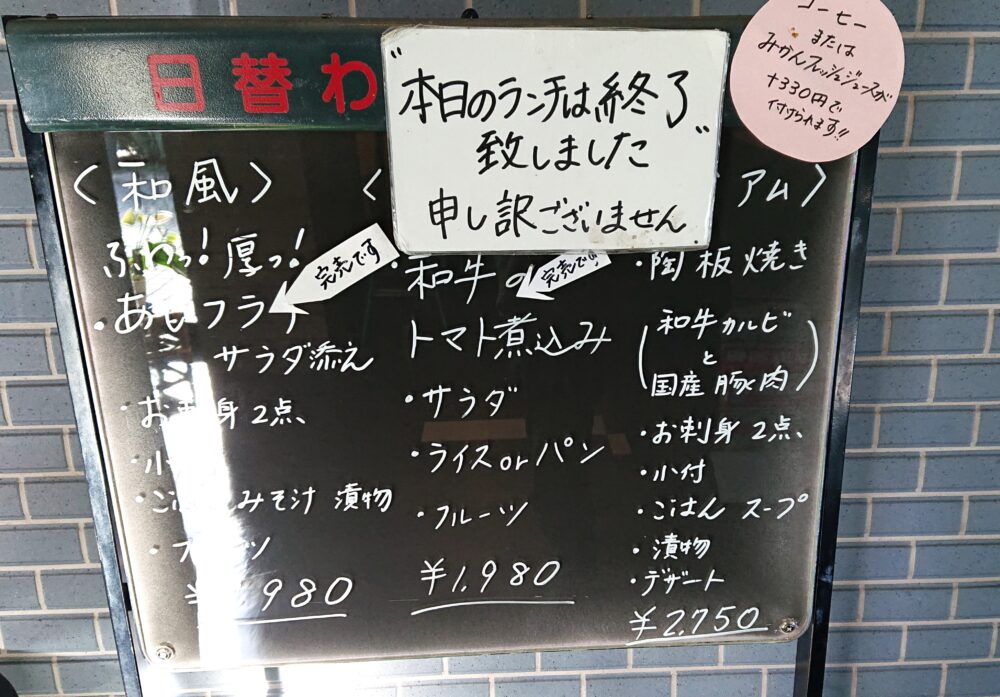 日替わ
"本日のランチは終了
致しました"
申し訳ございません
コーヒー
または
みかんフレッシュジュースが
+330円で
付けられます!!
〈和風〉
ふわっ!厚っ!
・あじフライ
サラダ添え
・お刺身2点、
・小
・ごはん みそ汁 漬物
・フルーツ
980
完売です
〈
・和牛の
トマト煮込み
・サラダ
・ライスorパン
・フルーツ
¥1,980
完売です
アム〉
・陶板焼き
(和牛カルビ
と
国産豚肉)
・お刺身2点、
・小付
・ごはん スープ
・漬物
・デザート
¥2,750